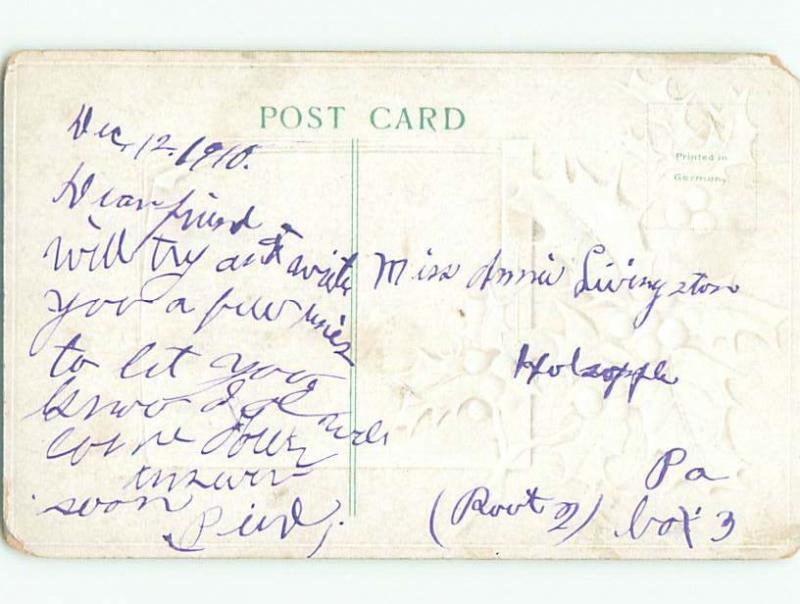 POST CARD
Printed in
Germany
Dec, 12. 1910.
Dear friend I
will try and write
you a few lines
to let you
know I
come down
answer
soon
Miss Annie Livingston
Holsopple
Pa
(Rout 2) box 3